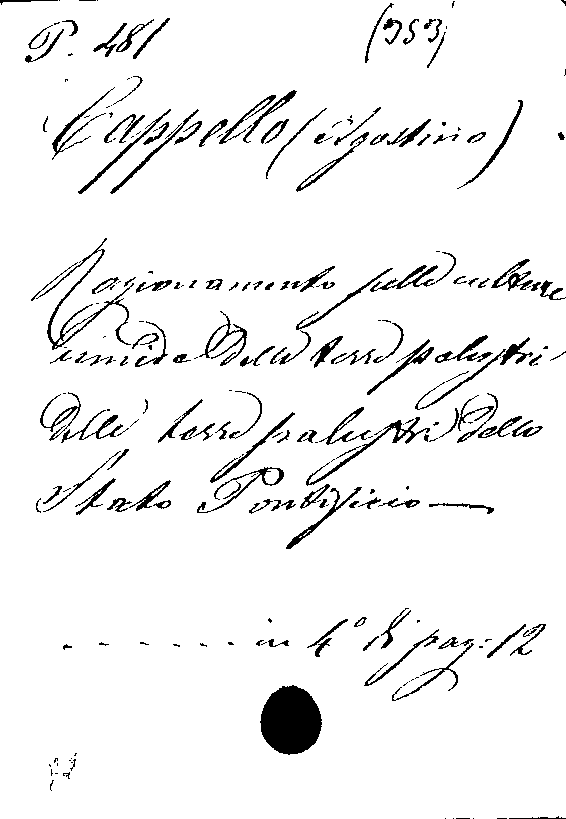 P. 481 (353)
Cappello (Agostino)
Ragionamento sulle culture
umide delle terre palustri
delle terre palustri dello
Stato Pontificio —
. . . . . . . in 4° di pag: 12